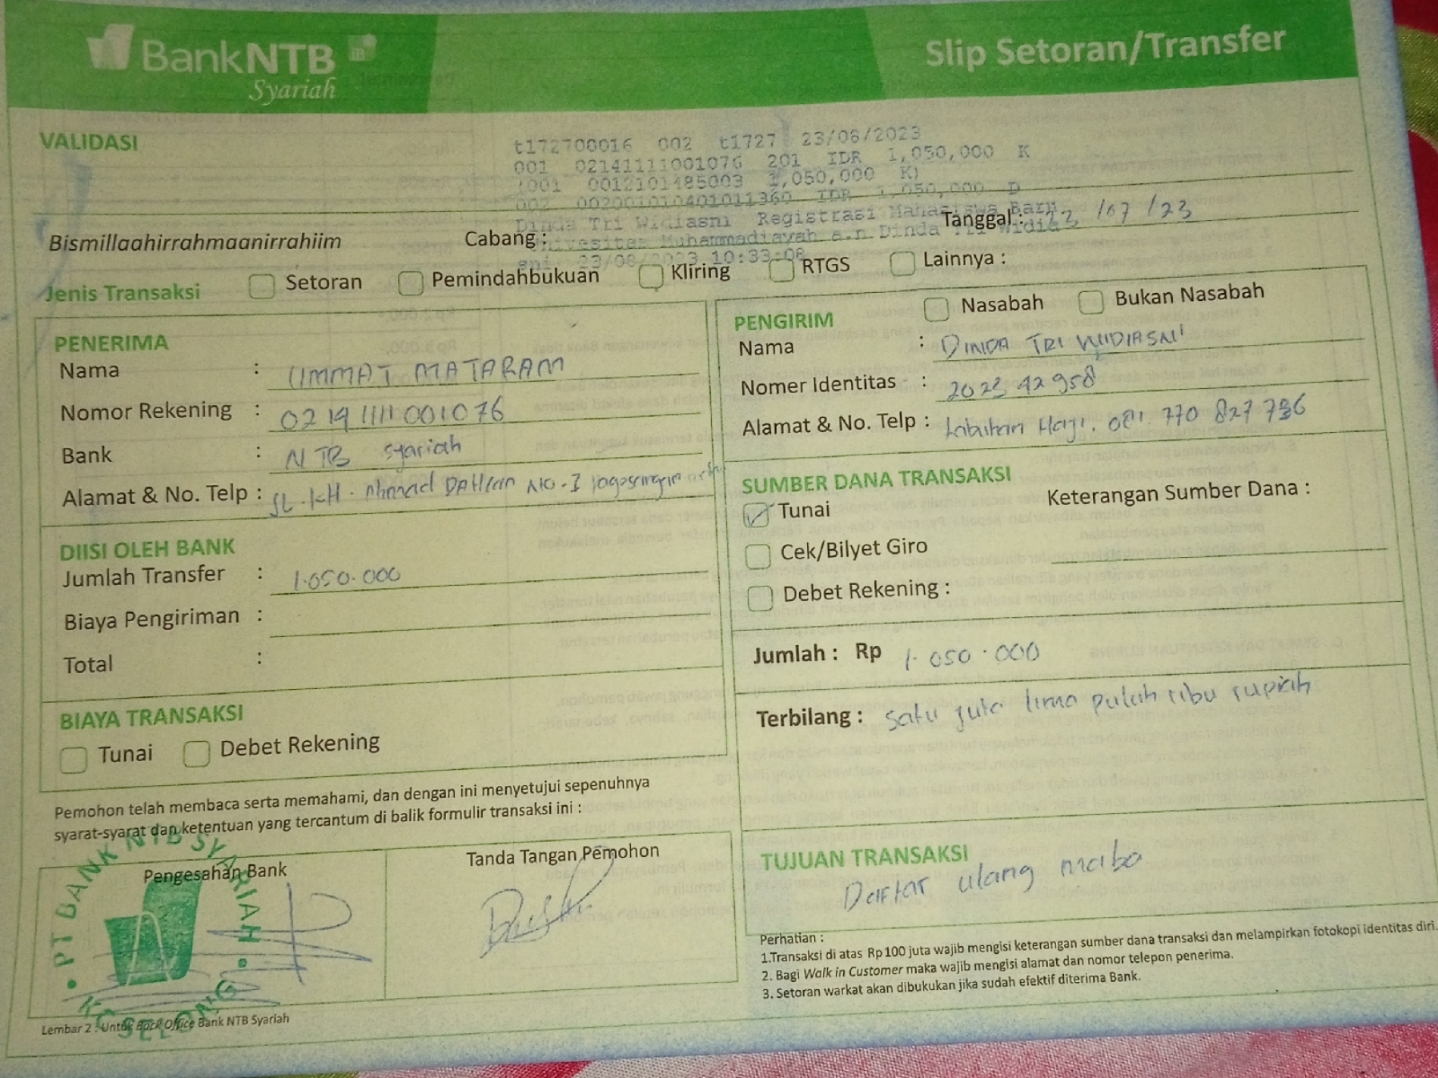 BankNTB
Syariah
Slip Setoran/Transfer
VALIDASI
t172700016 002 t1727 23/08/2023
001 02141111001076 201 IDR 1,050,000 K
(001 0012101485003 1,050,000 K)
002 002001010401011360 IDR 1,050,000 D
Dinda Tri Widiasni Registrasi Mahasiswa Baru
Universitas Muhammadiayah a.n Dinda Tri Widia
sni 23/08/2023 10:33:08
Bismillaahirrahmaanirrahiim
Cabang :
Tanggal : /07/23
Jenis Transaksi
Setoran
Pemindahbukuan
Kliring
RTGS
Lainnya :
PENERIMA
Nama : UMMAT MATARAM
Nomor Rekening : 02141111001076
Bank : NTB Syariah
Alamat & No. Telp : JL. KH. Ahmad DAHLAN NO. I
PENGIRIM
Nasabah
Bukan Nasabah
Nama : DINDA TRI WIDIASNI
Nomer Identitas : 2023 42958
Alamat & No. Telp : Labuhan Haji. 081 770 827 736
DIISI OLEH BANK
Jumlah Transfer : 1.050.000
Biaya Pengiriman :
Total :
SUMBER DANA TRANSAKSI
Tunai
Keterangan Sumber Dana :
Cek/Bilyet Giro
Debet Rekening :
Jumlah : Rp 1.050.000
BIAYA TRANSAKSI
Tunai
Debet Rekening
Terbilang : satu juta lima puluh ribu rupiah
Pemohon telah membaca serta memahami, dan dengan ini menyetujui sepenuhnya
syarat-syarat dan ketentuan yang tercantum di balik formulir transaksi ini :
Pengesahan Bank
Tanda Tangan Pemohon
PT BANK NTB SYARIAH
KC SELONG
TUJUAN TRANSAKSI
Daftar ulang maba
Perhatian :
1.Transaksi di atas Rp100 juta wajib mengisi keterangan sumber dana transaksi dan melampirkan fotokopi identitas diri.
2. Bagi Walk in Customer maka wajib mengisi alamat dan nomor telepon penerima.
3. Setoran warkat akan dibukukan jika sudah efektif diterima Bank.
Lembar 2 : Untuk Back Office Bank NTB Syariah